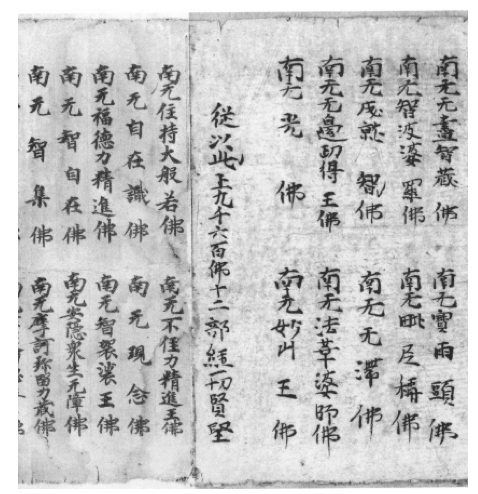 南无无盡智藏佛 南无寶雨頭佛
南无智波婆羅佛 南无毗尼稱佛
南无成就智佛 南无无滯佛
南无无邊功得王佛 南无法草婆師佛
南无光佛 南无妙山王佛
從以此上九千六百佛十二部經一切賢聖
南无住持大般若佛 南无不住力精進王佛
南无自在識佛 南无現念佛
南无福德力精進佛 南无智袈裟王佛
南无智自在佛 南无安隱衆生无障佛
南无智集佛 南无摩訶弥留力藏佛